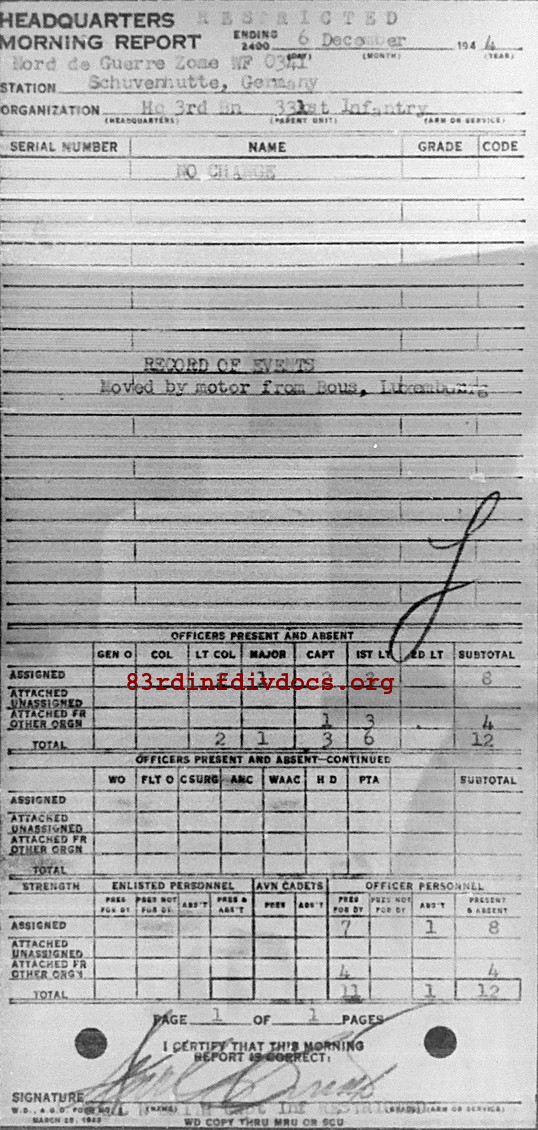 HEADQUARTERS RESTRICTED
MORNING REPORT ENDING 2400 6 December 1944
(DAY) (MONTH) (YEAR)
Nord de Guerre Zone WF 0341
STATION Schuvenhutte, Germany
ORGANIZATION Hq 3rd Bn 331st Infantry
(HEADQUARTERS) (PARENT UNIT) (ARM OR SERVICE)
SERIAL NUMBER NAME GRADE CODE
NO CHANGE
RECORD OF EVENTS
Moved by motor from Bous, Luxembourg
OFFICERS PRESENT AND ABSENT
GEN O COL LT COL MAJOR CAPT 1ST LT 2D LT SUBTOTAL
ASSIGNED 2 1 2 3 8
83rdinfdivdocs.org
ATTACHED UNASSIGNED
ATTACHED FR OTHER ORGN 1 3 4
TOTAL 2 1 3 6 12
OFFICERS PRESENT AND ABSENT—CONTINUED
WO FLT O CSURG ANC WAAC H D PTA SUBTOTAL
ASSIGNED
ATTACHED UNASSIGNED
ATTACHED FR OTHER ORGN
TOTAL
STRENGTH ENLISTED PERSONNEL AVN CADETS OFFICER PERSONNEL
PRES FOR DY PRES NOT FOR DY ABS'T PRES & ABS'T PRES ABS'T PRES FOR DY PRES NOT FOR DY ABS'T PRESENT & ABSENT
ASSIGNED 7 1 8
ATTACHED UNASSIGNED
ATTACHED FR OTHER ORG'N 4 4
TOTAL 11 1 12
PAGE 1 OF 1 PAGES
I CERTIFY THAT THIS MORNING
REPORT IS CORRECT:
SIGNATURE
Capt Inf RESTRICTED
W.D., A.G.O. FORM NO. 1 (NAME) (GRADE) (ARM OR SERVICE)
MARCH 25, 1943
WD COPY THRU MRU OR SCU